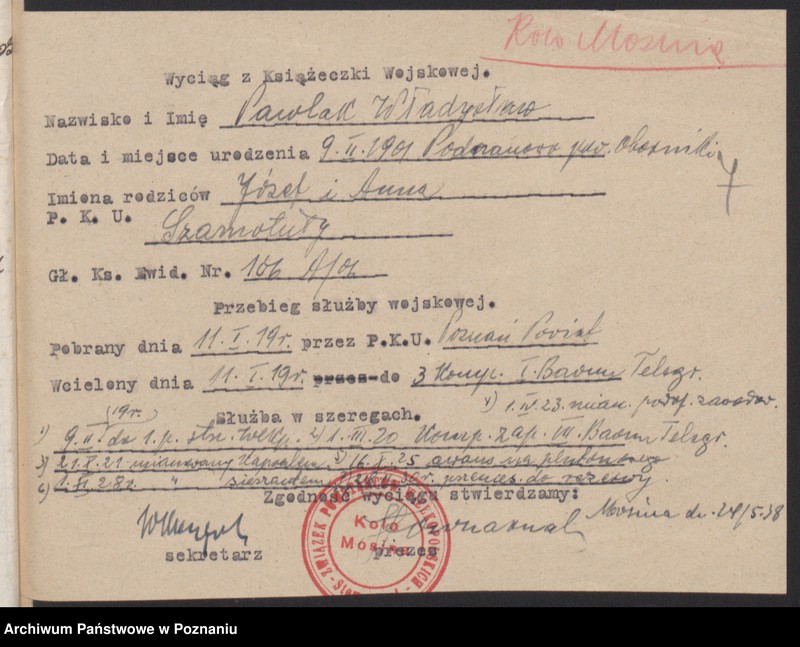 Koło Mosina
Wyciąg z Książeczki Wojskowej.
Nazwisko i Imię Pawlak Władysław
Data i miejsce urodzenia 9.II.1901 pow. Oborniki
Imiona rodziców Józef i Anna
P. K. U. Szamotuły
Gł. Ks. Ewid. Nr. 106 A/01
Przebieg służby wojskowej.
Pobrany dnia 11.I.19r. przez P.K.U. Poznań Powiat
Wcielony dnia 11.I.19r. przez do 3 Komp. I. Baonu Telegr.
Służba w szeregach.
4) 1.IV.23. mian. podof. zawodow.
19r.
1) 9.II do 1.p. str. Wlkp. 2) 1.III.20 Komp. zap. VII. Baonu Telegr.
3) 21.X.21 mianowany kapralem 5) 16.X.25 awans na plutonowego
6) 1.XI.28r. " sierżantem przenies. do rezerwy.
Zgodność wyciągu stwierdzamy:
Mosina dn. 24/5.38
sekretarz
prezes
ZWIĄZEK WIELKOPOLSKICH
Koło
Mosina
Archiwum Państwowe w Poznaniu